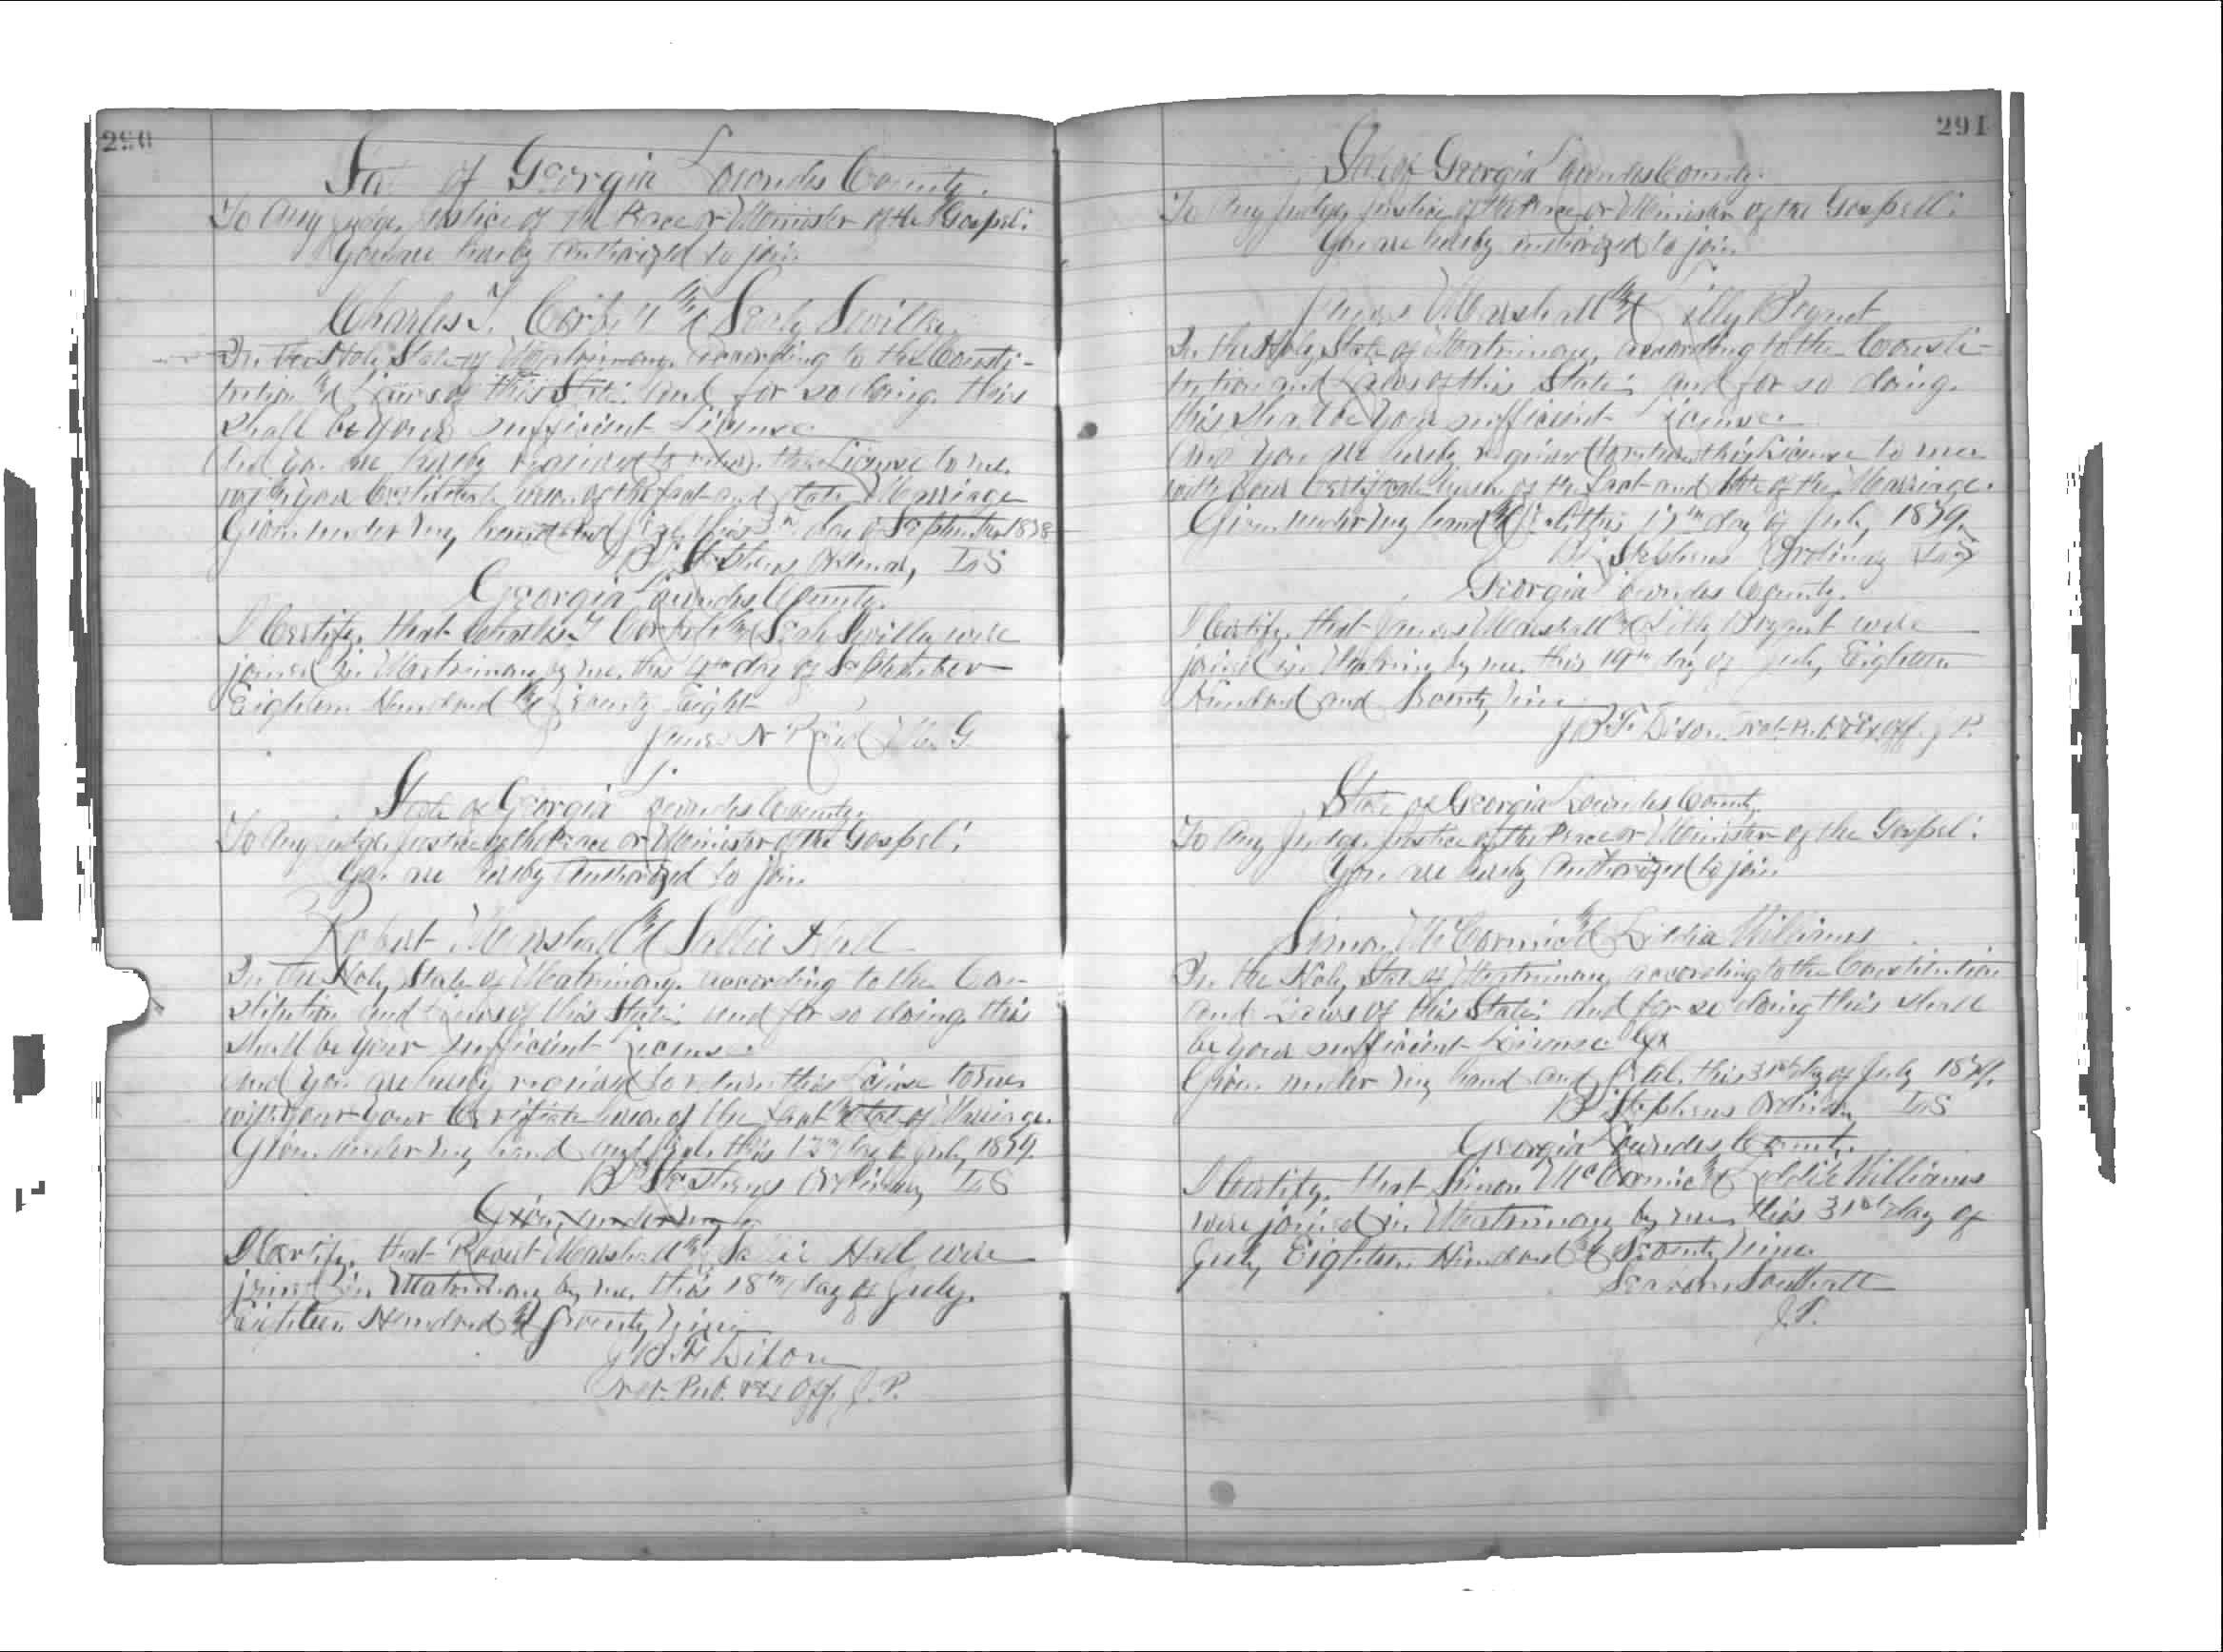 290
State of Georgia Lowndes County.
To Any Judge, Justice of the Peace or Minister of the Gospel:
You are hereby Authorized to join
Charles T. &
In the Holy State of Matrimony, according to the Consti-
tution & Laws of this State; and for so doing this
shall be your sufficient License
And you are hereby required to return this License to me
with your Certificate hereon of the fact and date Marriage
Given under my hand and Seal this 3rd day of September 1878
B. Stephens Ordinary LS
Georgia Lowndes County.
I Certify, that Charles T & were
joined in Matrimony by me, this 4th day of September
Eighteen Hundred & Seventy Eight
James N M. G.
State of Georgia Lowndes County.
To Any Judge, Justice of the Peace or Minister of the Gospel:
You are hereby Authorized to join
Robert Marshall & Sallie Hall
In the Holy State of Matrimony, according to the Con-
stitution and Laws of this State; and for so doing this
shall be your sufficient License.
And you are hereby required to return this License to me
with your your Certificate hereon of the fact & date of Marriage.
Given under my hand and Seal this day of July 1879.
B. Stephens Ordinary LS
Given under my
I Certify, that Robert Marshall & Sallie Hall were
joined in Matrimony by me, this 18th day of July,
Eighteen Hundred & Seventy Nine
J B. F Dixon
Not. Pub. & Ex Off. J. P.
291
State of Georgia Lowndes County.
To Any Judge, Justice of the Peace or Minister of the Gospell:
You are hereby authorized to join
James Marshall & Lilly Bryant
In the Holy State of Matrimony, according to the Consti-
tution and Laws of this State; and for so doing
this shall be your sufficient License.
And you are hereby required to return this License to me
with your Certificate hereon of the fact and date of the Marriage.
Given under my hand & Seal, this 17th day of July, 1879.
B. Stephens Ordinary LS
Georgia Lowndes County.
I Certify, that James Marshall & Lilly Bryant were
joined in Matrimony by me, this 19th day of July, Eighteen
Hundred and Seventy Nine.
J B. F. Dixon. Not. Pub. & Ex Off. J. P.
State of Georgia Lowndes County
To Any Judge, Justice of the Peace or Minister of the Gospel:
You are hereby Authorized to join
Simon McCormic & Williams
In the Holy State of Matrimony according to the Constitution
and Laws of this State; and for so doing this shall
be your sufficient License
Given under my hand and Seal, this 31st day of July 1879.
B. Stephens Ordinary LS
Georgia Lowndes County.
I Certify, that Simon McCormic & Williams
were joined in Matrimony by me, this 31st day of
July, Eighteen Hundred & Seventy Nine.
J. P.